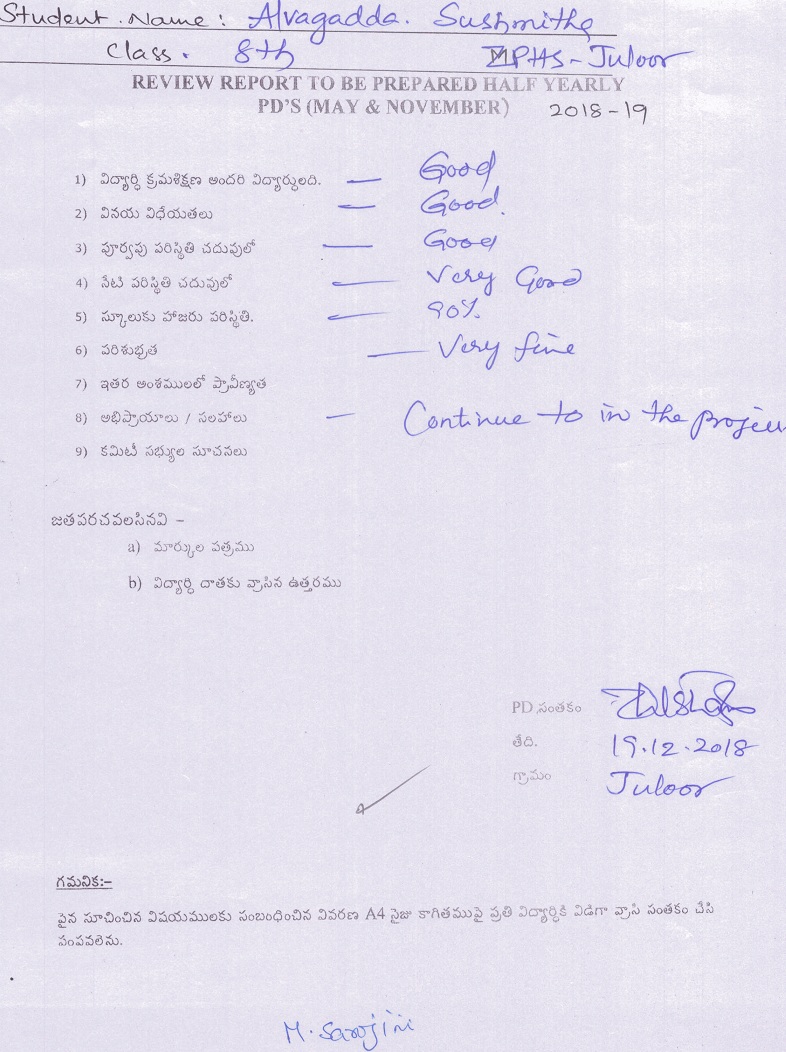 Student Name: Alvagadda. Sushmitha
Class. 8th ZPHS-Juloor
REVIEW REPORT TO BE PREPARED HALF YEARLY
PD'S (MAY & NOVEMBER) 2018-19
1) విద్యార్ధి క్రమశిక్షణ అందరి విద్యార్ధులది. — Good
2) వినయ విధేయతలు — Good.
3) పూర్వపు పరిస్థితి చదువులో — Good
4) నేటి పరిస్థితి చదువులో — Very Good
5) స్కూలుకు హాజరు పరిస్థితి. — 90%
6) పరిశుభ్రత — Very fine
7) ఇతర అంశములలో ప్రావీణ్యత
8) అభిప్రాయాలు / సలహాలు — Continue to in the
9) కమిటీ సభ్యుల సూచనలు
జతపరచవలసినవి –
a) మార్కుల పత్రము
b) విద్యార్ధి దాతకు వ్రాసిన ఉత్తరము
PD సంతకం
తేది. 19.12.2018
గ్రామం Juloor
గమనిక:–
పైన సూచించిన విషయములకు సంబంధించిన వివరణ A4 సైజు కాగితముపై ప్రతి విద్యార్ధికి విడిగా వ్రాసి సంతకం చేసి
సంపవలెను.
M. Sarojini